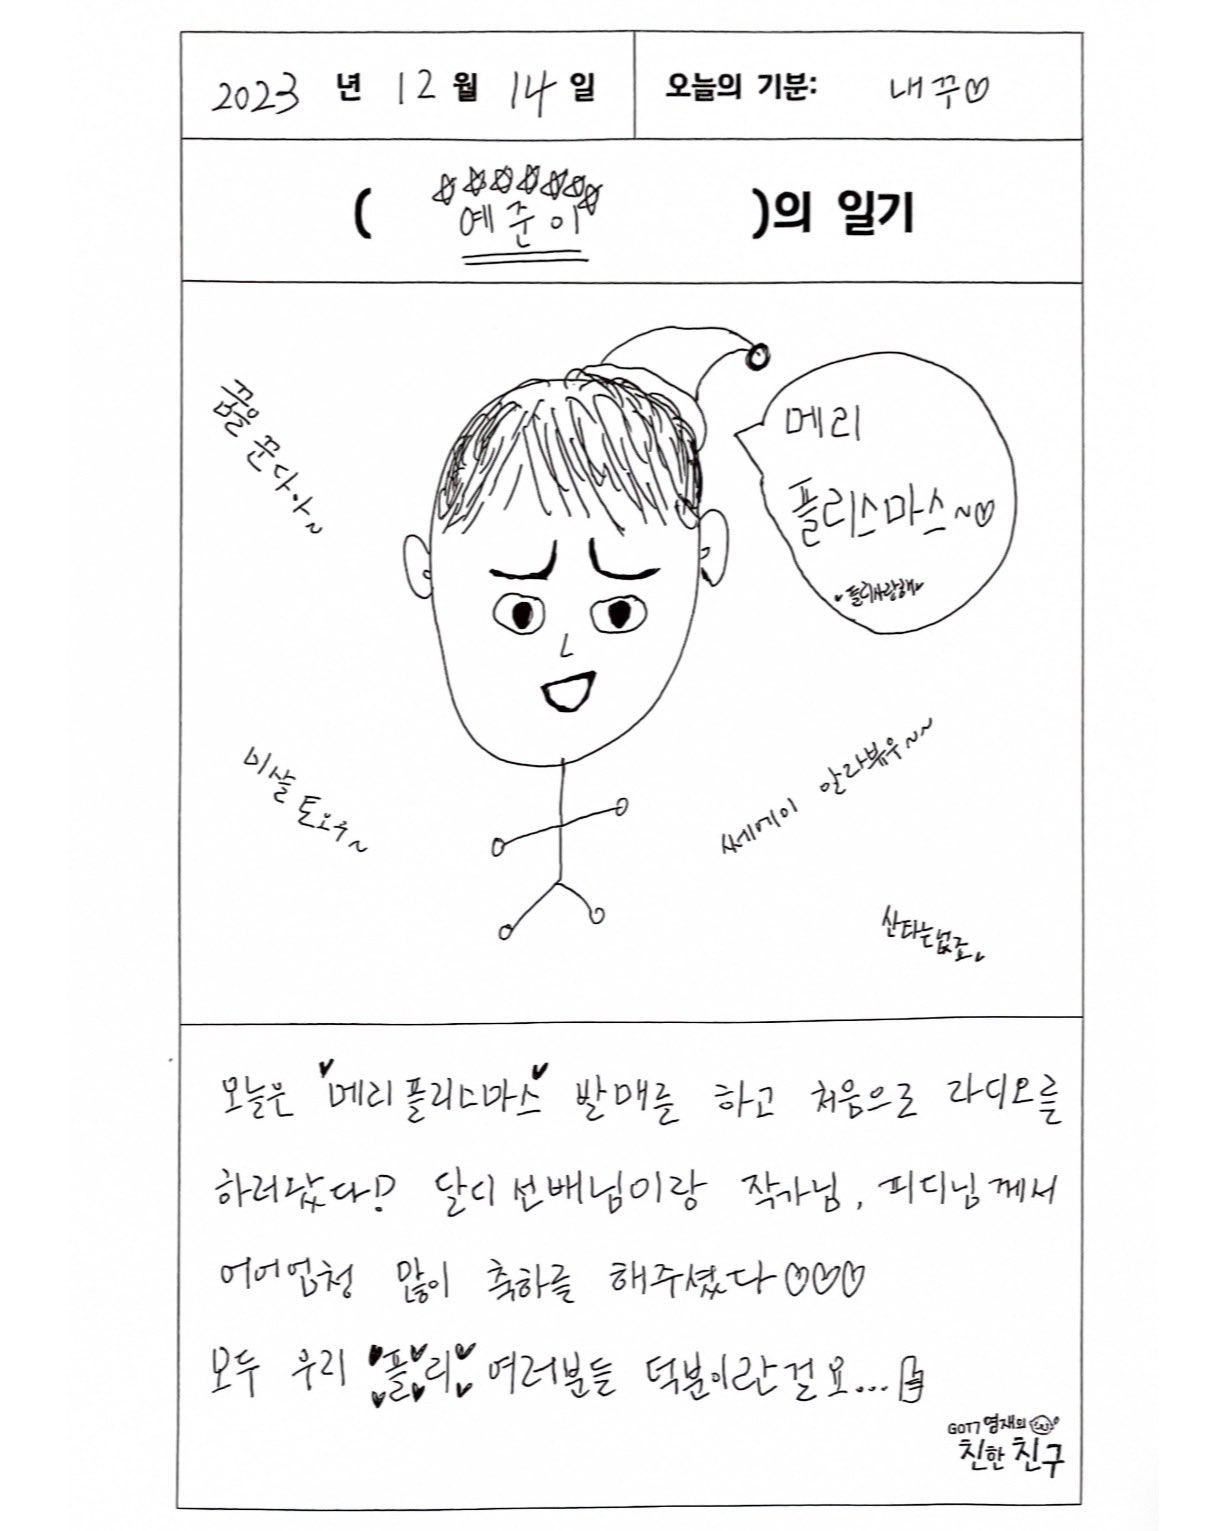 2023 년 12 월 14 일
오늘의 기분: 내꾸♡
( 예준이 )의 일기
꿈을 꾼다아~
메리
플리스마스~♡
플리사랑해
미쓸토오우~
쎄에이 알라뷰우~~
산타는없죠
오늘은 "메리플리스마스" 발매를 하고 처음으로 라디오를
하러왔다! 달디 선배님이랑 작가님, 피디님께서
어어엄청 많이 축하를 해주셨다♡♡♡
모두 우리 플리 여러분들 덕분이란걸요...
GOT7 영재의
친한친구